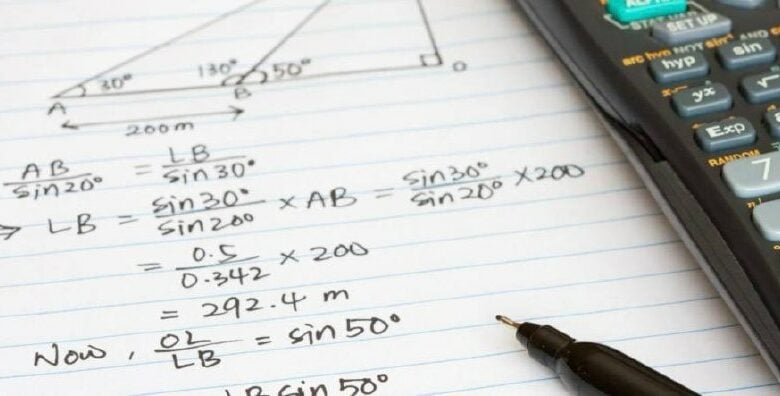 30° 130° 50°
A B O
200m
AB / sin20° = LB / sin 30°
→ LB = sin 30° / sin 20° × AB = sin 30° / sin 20° × 200
= 0.5 / 0.342 × 200
= 292.4 m
Now, OL / LB = sin 50°
LB sin 50°
ALPHA
STAT SET UP
arc hyp NOT sin⁻¹ AND
hyp sin
yˣ √
Exp
RANDOM
7